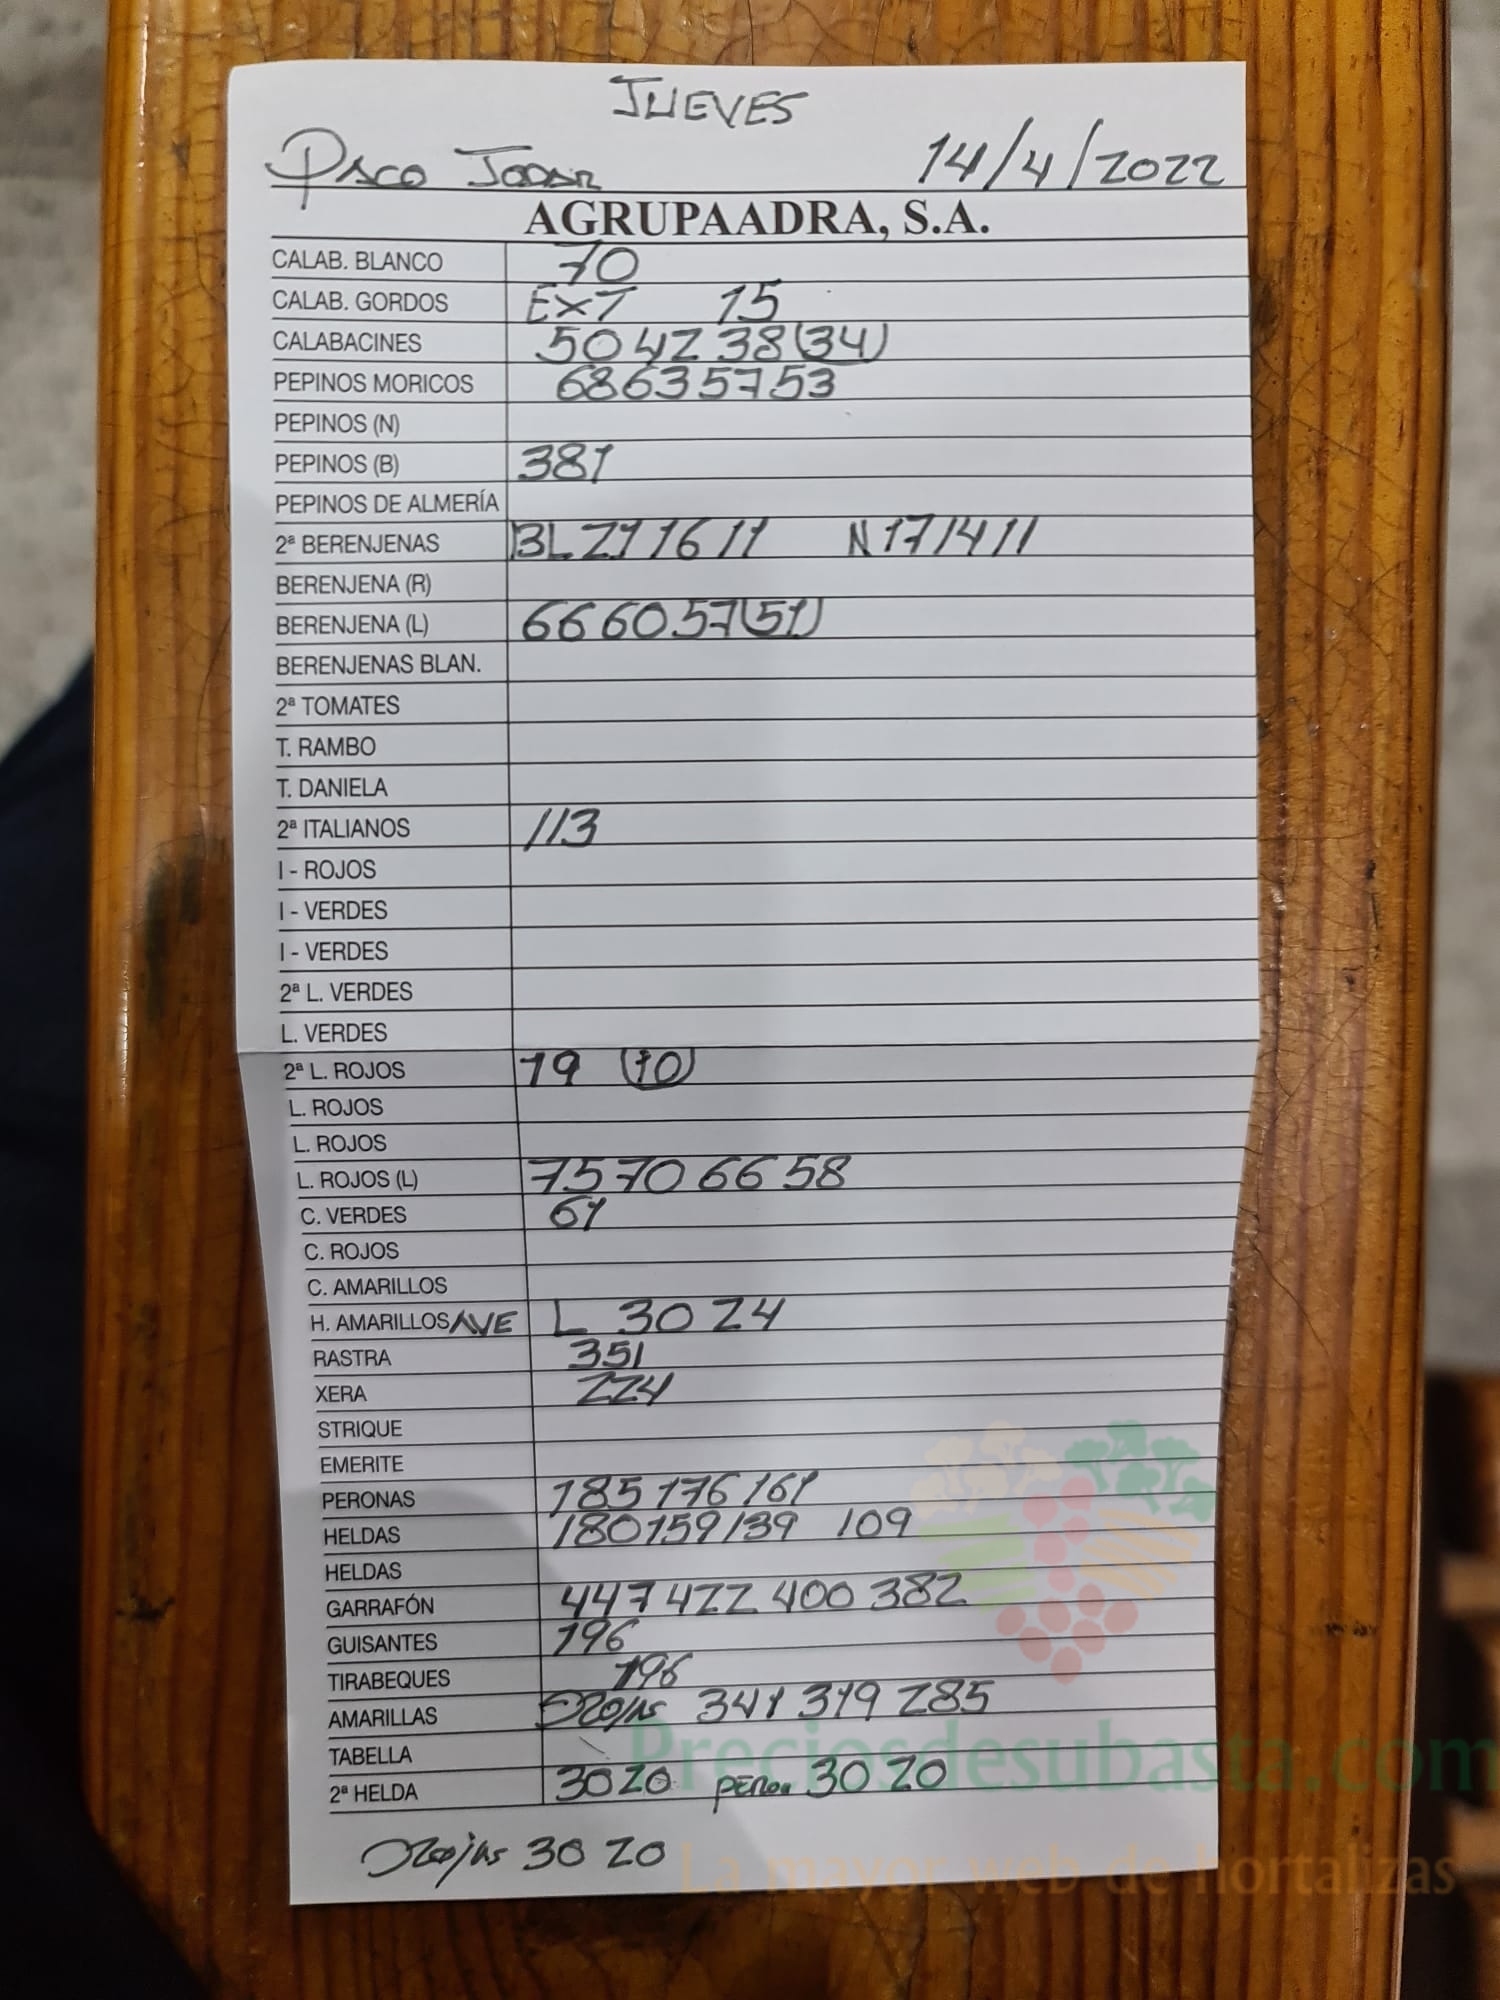 JUEVES
PACO JODAR 14/4/2022
AGRUPAADRA, S.A.
CALAB. BLANCO 70
CALAB. GORDOS EXT 15
CALABACINES 50 42 38 (34)
PEPINOS MORICOS 68 63 57 53
PEPINOS (N)
PEPINOS (B) 381
PEPINOS DE ALMERÍA
2ª BERENJENAS BL 21 16 11 N 17 14 11
BERENJENA (R)
BERENJENA (L) 66 60 57 (51)
BERENJENAS BLAN.
2ª TOMATES
T. RAMBO
T. DANIELA
2ª ITALIANOS 113
I - ROJOS
I - VERDES
I - VERDES
2ª L. VERDES
L. VERDES
2ª L. ROJOS 19 (10)
L. ROJOS
L. ROJOS
L. ROJOS (L) 75 70 66 58
C. VERDES 61
C. ROJOS
C. AMARILLOS
H. AMARILLOS AVE L 30 24
RASTRA 351
XERA 224
STRIQUE
EMERITE
PERONAS 185 176 161
HELDAS 180 159 139 109
HELDAS
GARRAFÓN 447 422 400 382
GUISANTES 196
TIRABEQUES 196
AMARILLAS Rojas 341 319 285
TABELLA
2ª HELDA 30 20 PERON 30 20
Rojas 30 20
Preciosdesubasta.com
La mayor web de hortalizas